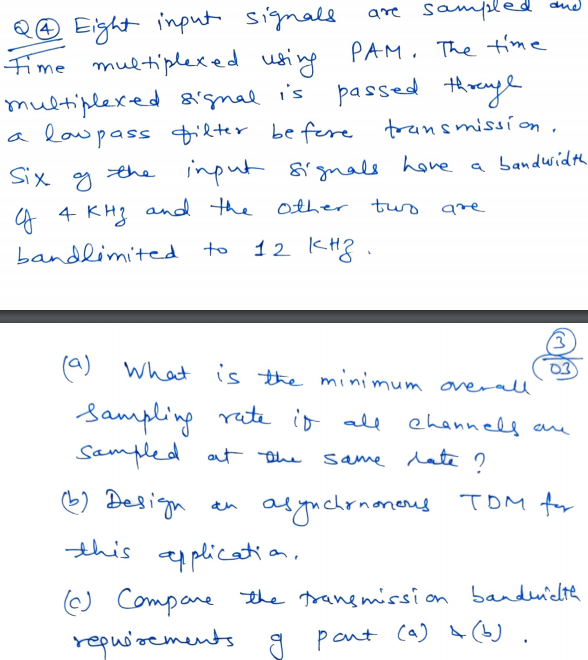 Q④ Eight input signals are sampled and
Time multiplexed using PAM. The time
multiplexed signal is passed through
a lowpass filter before transmission.
Six of the input signals have a bandwidth
of 4 KHz and the other two are
bandlimited to 12 KHz.
③
03
(a) What is the minimum overall
sampling rate if all channels are
sampled at the same rate?
(b) Design an asynchrnonous TDM for
this application.
(c) Compare the transmission bandwidth
requirements of part (a) & (b).